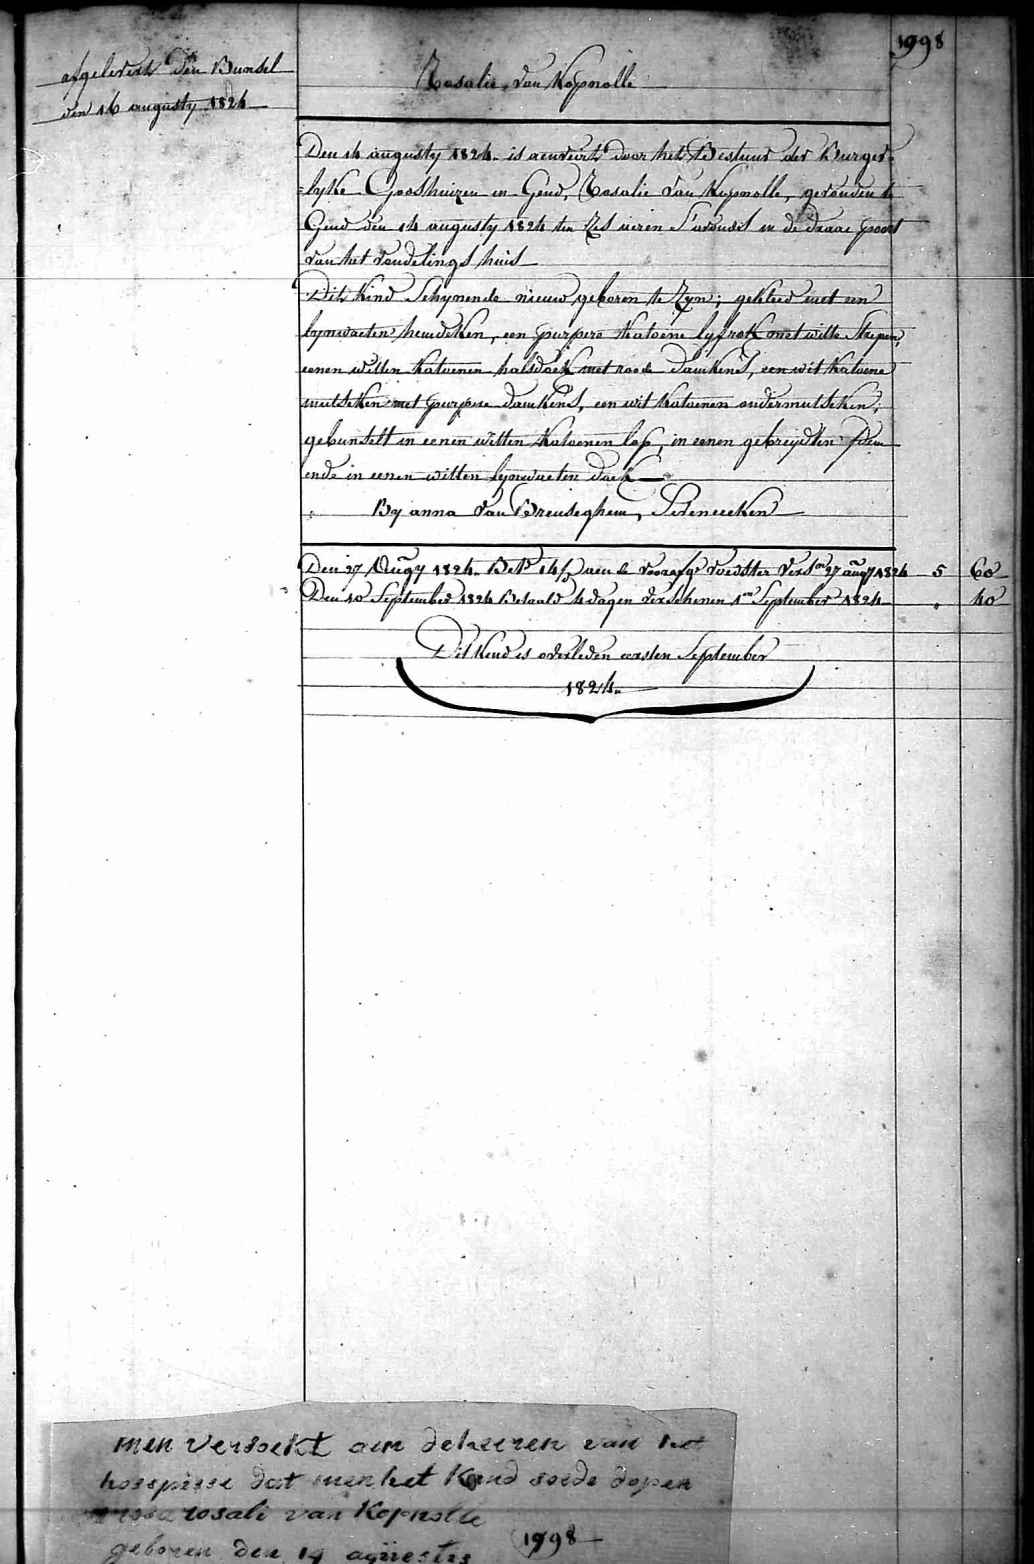 1998
afgelevert den Bunsel
den 16 augusty 1824
Rosalie van Kopnolle
Den 14 augusty 1824 is aenveirt door het Bestuur der Burger=
=lyke Godshuizen in Gend, Rosalie van Kopnolle, gevonden te
Gend den 14 augusty 1824 ten zes uren s'avonds in de draai poort
van het vondelings huis
Dit Kind Schynende nieuw geboren te Zyn; gekleed met een
lynwaeten hemdeken, een purpere Katoene lyfrok met witte Strepen,
eenen witten Katoenen halsdoek met roode dамkens, een wit Katoene
mutseken met purpere damkens, een wit Katoenen ondermutseken;
gebunselt in eenen witten Katoenen lap, in eenen gebreyden
ende in eenen witten lynwaeten doek
By anna Van Breuseghem, Serenecken
Den 27 Augy 1824. Bet. 14 aen de voorzge voedster Versen 27 augy 1824 5 60
Den 10 September 1824 Betaald 4 dagen verschenen 1en September 1824 " 40
Dit Kind is overleden eersten September
1824.
men versoekt aen deheeren van het
hosspisse dat men het Kind soude dopen
rosa rosali van Kopnolle
geboren den 14 agüestus 1998